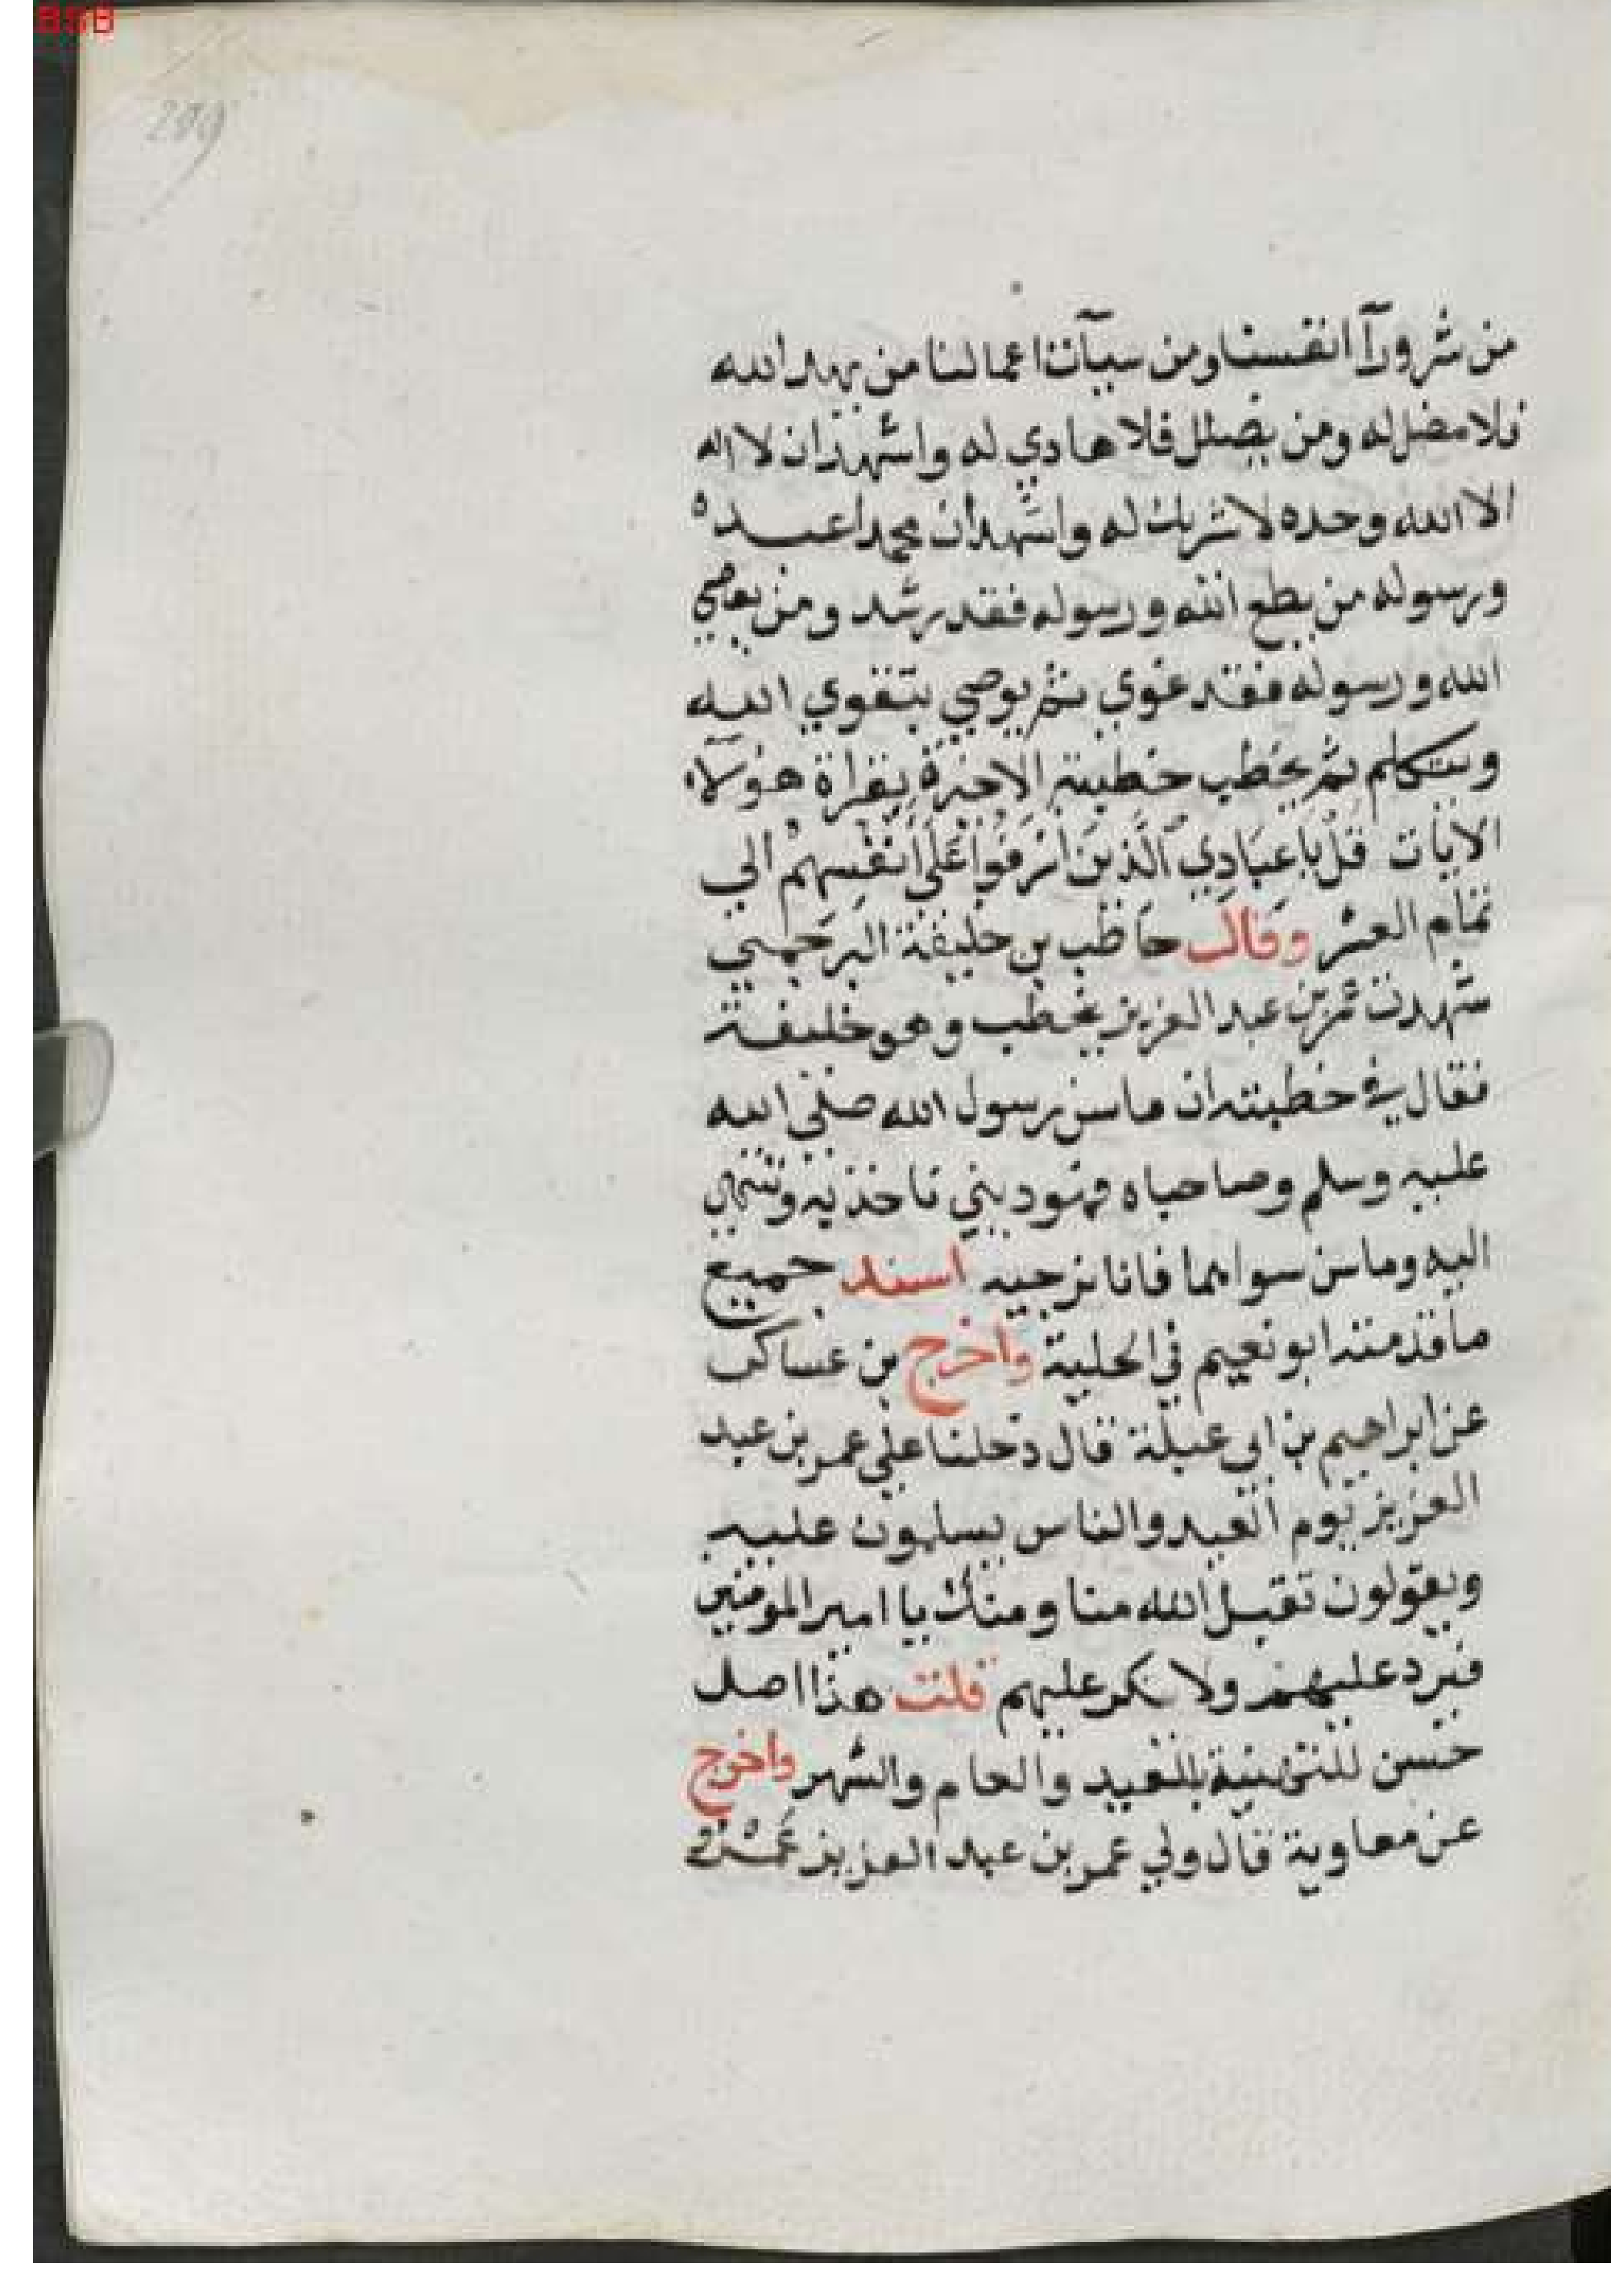 BSB
289
من شرورآ انفسنا ومن سيآت اعمالنا من يهد الله
فلا مضل له ومن يضلل فلا هادي له واشهد ان لا اله
الا الله وحده لا شريك له واشهد ان محمدا عبده
ورسوله من يطع الله ورسوله فقد رشد ومن يعصي
الله ورسوله فقد غوي ثم يوصي بتقوي الله
ويتكلم ثم يخطب خطبته الاخيرة بقراة هولاء
الايات قل يَا عبَادِي الَّذينَ اسْرَفُوا عَلَى أنفسِهمْ الي
تمام العشر وقال حاظب بن خليفة البرحمي
شهدت عمر بن عبد العزيز يخطب وهو خليفة
فقال في خطبته ان ما سن رسول الله صلي الله
عليه وسلم وصاحباه فهو ديني ناخذ به وننتهي
اليه وما سن سواهما فانا نرجيه اسند جميع
ما قدمته ابو نعيم في الحلية واخرج بن عساكر
عن ابراهيم بن ابي عبلة قال دخلنا علي عمر بن عبد
العزيز يوم العيد والناس يسلمون عليه
ويقولون تقبل الله منا ومنك يا امير المومنين
فيرد عليهم ولا ينكر عليهم قلت هذا اصل
حسن للتهنية بالعيد والعام والشهر واخرج
عن معاوية قال ولي عمر بن عبد العزيز عمرو